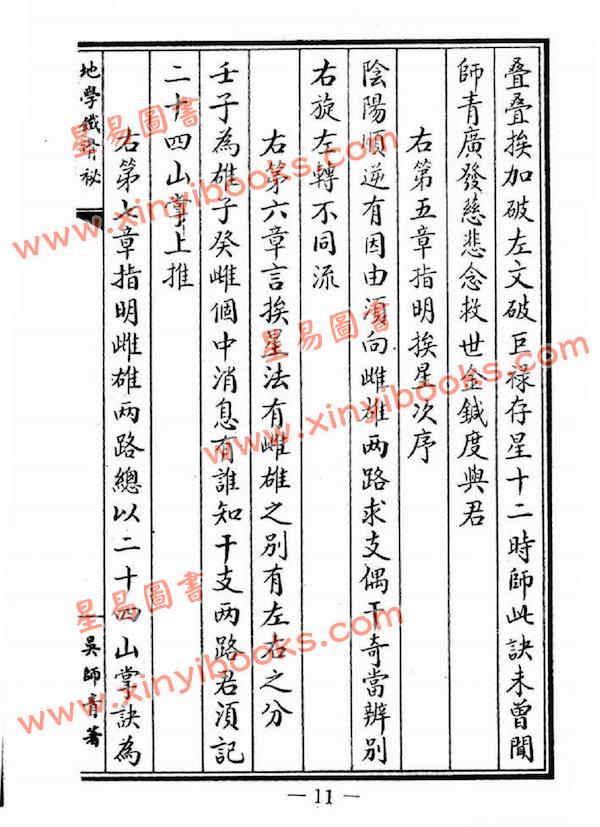 疊疊挨加破左文破巨祿存星十二時師此訣未曾聞
師青廣發慈悲念救世金鍼度與君
右第五章指明挨星次序
陰陽順逆有因由須向雌雄两路求支偶干奇當辨别
右旋左轉不同流
右第六章言挨星法有雌雄之別有左右之分
壬子為雄子癸雌個中消息有誰知干支两路君須記
二十四山掌上推
右第七章指明雌雄两路總以二十四山掌訣為
地學鐵骨秘
吳師青著
— 11 —
星易圖書
www.xinyibooks.com
星易圖書
www.xinyibooks.com
星易圖書
www.xinyibooks.com